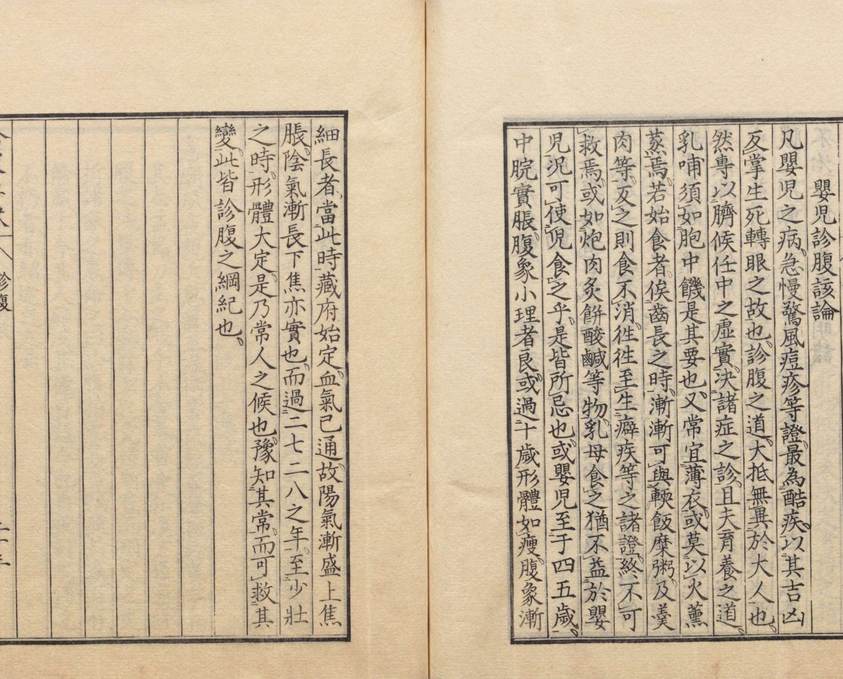 嬰児診腹該論
凡嬰児之病急慢驚風痘疹等證最為酷疾以其吉凶
反掌生死轉眼之故也診腹之道大抵無異於大人也
然專以臍候任中之虛實決諸症之診且夫育養之道
乳哺須如胞中饑是其要也又常宜薄衣或莫以火薰
蒸焉若始食者俟齒長之時漸漸可與輭飯糜粥及羹
肉等反之則食不消徃徃至生癖疾等之諸證終不可
救焉或如炮肉炙餅酸鹹等物乳母食之猶不益於嬰
児況可使児食之乎是皆所忌也或嬰児至于四五歲
中脘實脹腹象小理者良或過十歲形體如瘦腹象漸
細長者當此時藏府始定血氣已通故陽氣漸盛上焦
脹陰氣漸長下焦亦實也而過二七二八之年至少壯
之時形體大定是乃常人之候也豫知其常而可救其
變此皆診腹之綱紀也
診腹